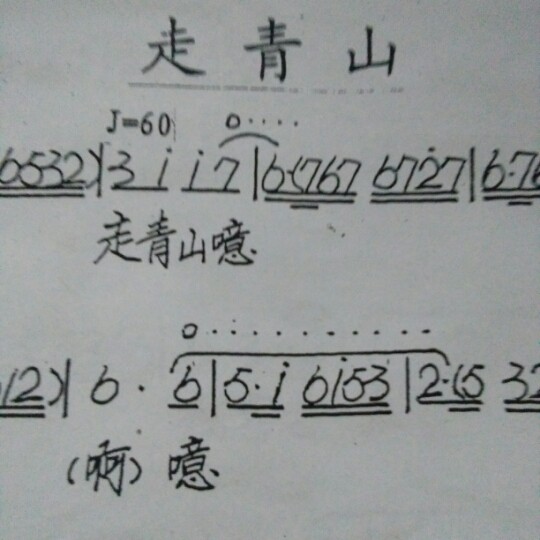 走青山
J=60 o····
6532)|3 i i 7|6·(767 6727|6·76
走青山噫
o············
612)|6· 6|5·i 6i53|2·(5 32
(啊)噫